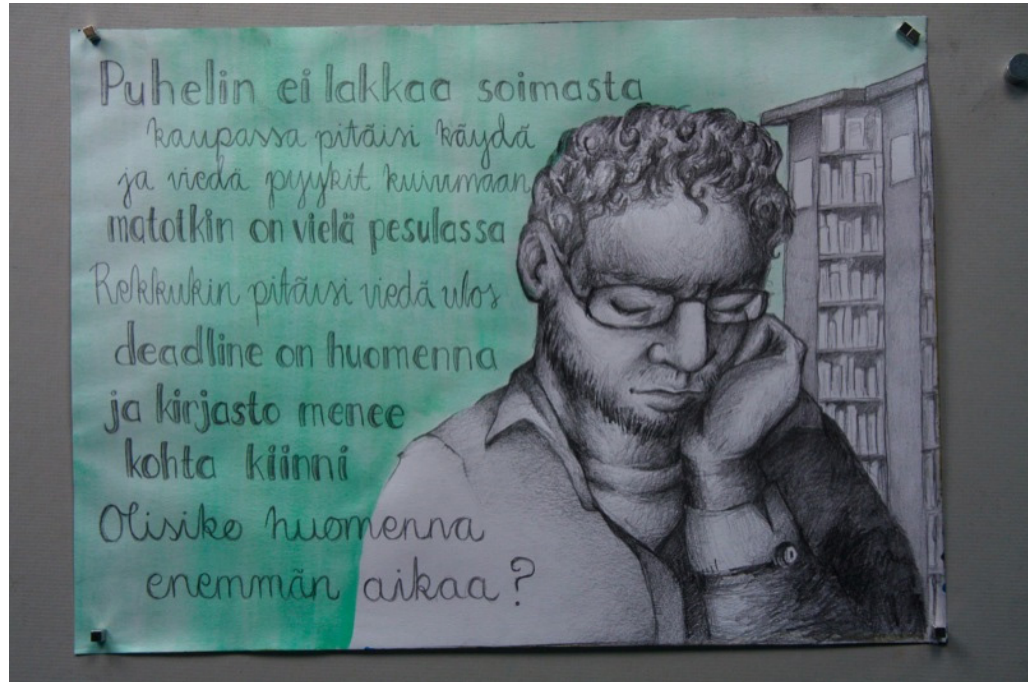 Puhelin ei lakkaa soimasta
kaupassa pitäisi käydä
ja viedä pyykit kuivumaan
matotkin on vielä pesulassa
Rekkukin pitäisi viedä ulos
deadline on huomenna
ja kirjasto menee
kohta kiinni
Olisiko huomenna
enemmän aikaa?